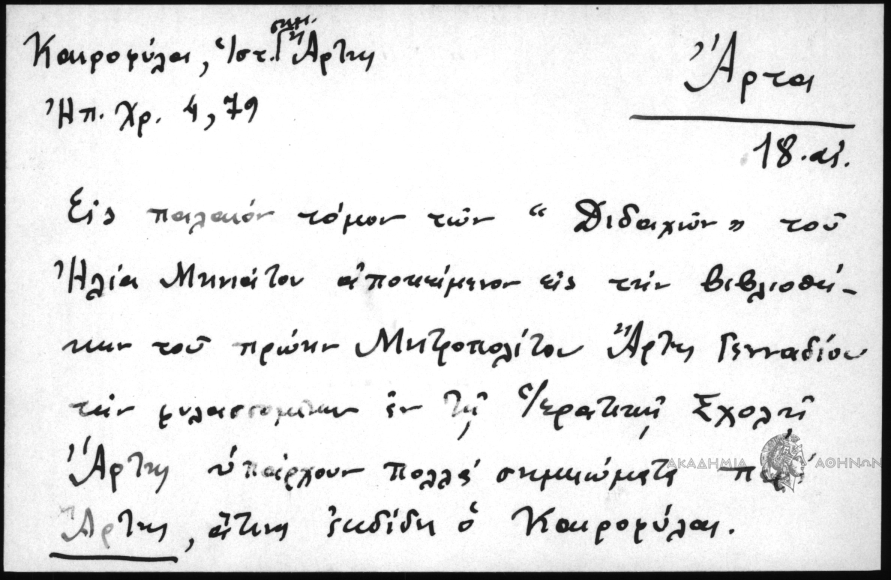 Καιροφύλα, Ἱστ. σημ. Ἄρτης
Ἠπ. Χρ. 4, 79
Ἄρτα
18. αἰ.
Εἰς παλαιὸν τόμον τῶν “ Διδαχῶν „ τοῦ
Ἠλία Μηνιάτου ἀποκείμενον εἰς τὴν βιβλιοθή-
κην τοῦ πρώην Μητροπολίτου Ἄρτης Γενναδίου
τὴν φυλασσομένην ἐν τῇ Ἱερατικῇ Σχολῇ
Ἄρτης ὑπάρχουν πολλὰ σημειώματα περὶ
Ἄρτης, ἅτινα ἐκδίδει ὁ Καιροφύλας.
ΑΚΑΔΗΜΙΑ ΑΘΗΝΩΝ